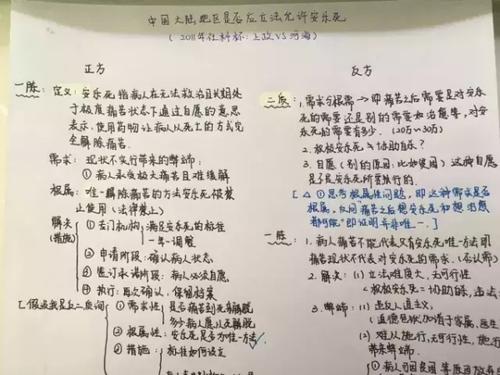 中国大陆地区是否应立法允许安乐死
(2011年社科杯:上政VS河海)
正方
一陈:定义:安乐死指病人在无法救治且长期处
于极度痛苦状态下通过自愿的意思
表示,使用药物让病人从死亡的方式完
全解除痛苦。
需求:现状不实行带来的弊端:
①病人承受极大痛苦且难缓解
根属:唯一解除痛苦的方法安乐死被禁
止使用(法律禁止)
解决(措施)
①专门机构:满足安乐死的标准
一年一调整
②申请阶段:确认病人状态
③签订承诺阶段:病人必须自愿
④执行:再次确认,保留档案
[假设我是反二质询
①需求性:是否痛苦到死才能解脱
多少病人愿从死解脱
②根属性:安乐死是否为唯一方法
③措施:标准如何设立
反方
二质:1.需求与根属→即痛苦之后需要是对安乐
死的需要还是别的需要如治愈等,对安
乐死的需要有多少.(20万~30万)
2.极极安乐死≠协助自杀?
3.自愿(别的原因:比如贫困)这种自愿
是否是安乐死所要执行的.
[△①思考根属性问题,即这种需求是否
根属,反问痛苦之后想安乐死和想求愈
都可能"即证明并非唯一.]
一陈:1.病人痛苦不能代表只有安乐死唯一方法即
痛苦现状不代表对安乐死的需求.(否认需)
2.解决:(1)立法难度大,无可行性
极极安乐死=协助自杀,违法
3.弊端:(1)违反人道主义,
道德包袱加诸于家属,医生
(2)难人施行,无可行性,施行
带来弊端.
①病人因贫困等原因放